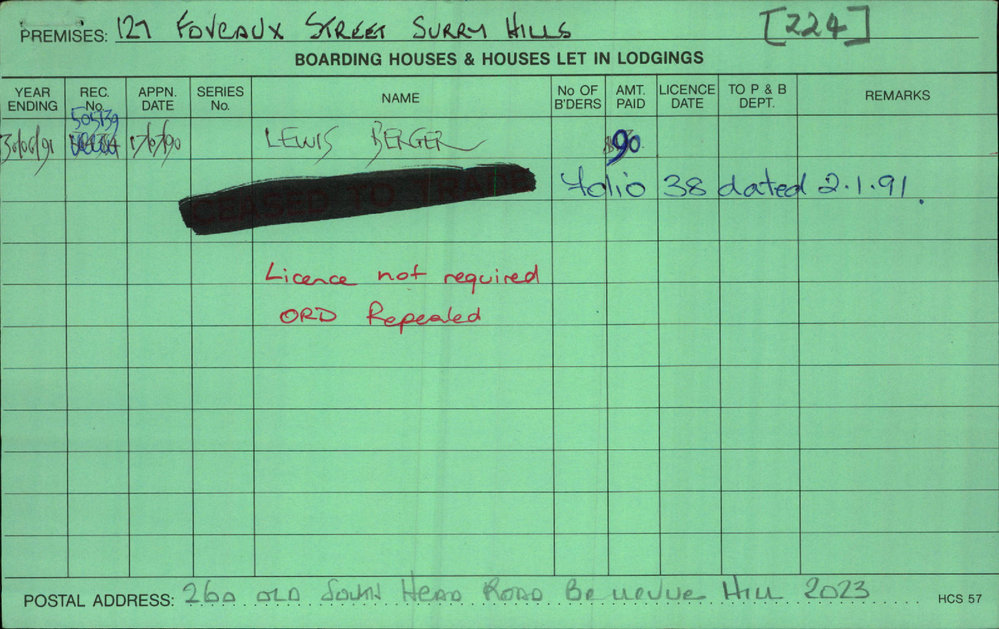 PREMISES: 127 FOVEAUX STREET SURRY HILLS [224]
BOARDING HOUSES & HOUSES LET IN LODGINGS
YEAR ENDING REC. No. APPN. DATE SERIES No. NAME No OF B'DERS AMT. PAID LICENCE DATE TO P & B DEPT. REMARKS
505139
30/06/91 17/7/90 LEWIS BERGER 90
CEASED TO TRADE folio 38 dated 2.1.91.
Licence not required
ORD Repealed
POSTAL ADDRESS: 260 OLD SOUTH HEAD ROAD BELLEVUE HILL 2023 HCS 57